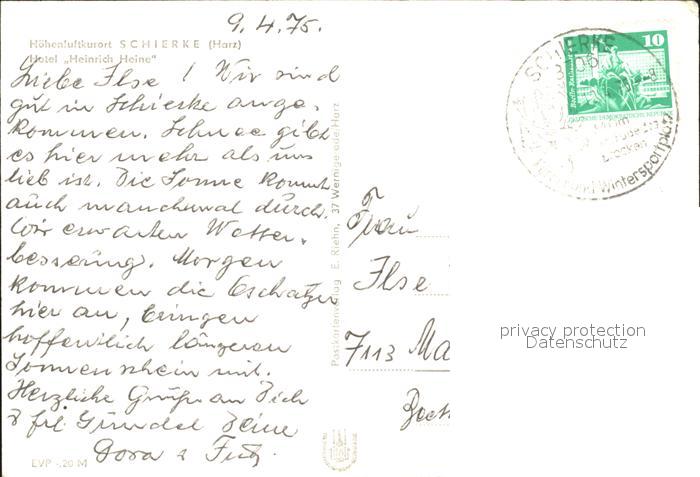 9.4.75.
Höhenluftkurort SCHIERKE (Harz)
Hotel „Heinrich Heine"
Liebe Ilse! Wir sind
gut in Schierke ange-
kommen. Schnee gibt
es hier mehr als uns
lieb ist. Die Sonne kommt
auch manchmal durch.
Wir erwarten Wetter-
besserung. Morgen
kommen die
hier an, bringen
hoffentlich längeren
Sonnenschein mit.
Herzliche Grüße an Dich
Deine
Dora u. Fritz
EVP -,20 M
Postkartenverlag E. Riehn, 37 Wernigerode/Harz
SCHIERKE
Wintersportplatz
10
DEUTSCHE DEMOKRATISCHE REPUBLIK
Frau
Ilse
7113 Ma
privacy protection
Datenschutz